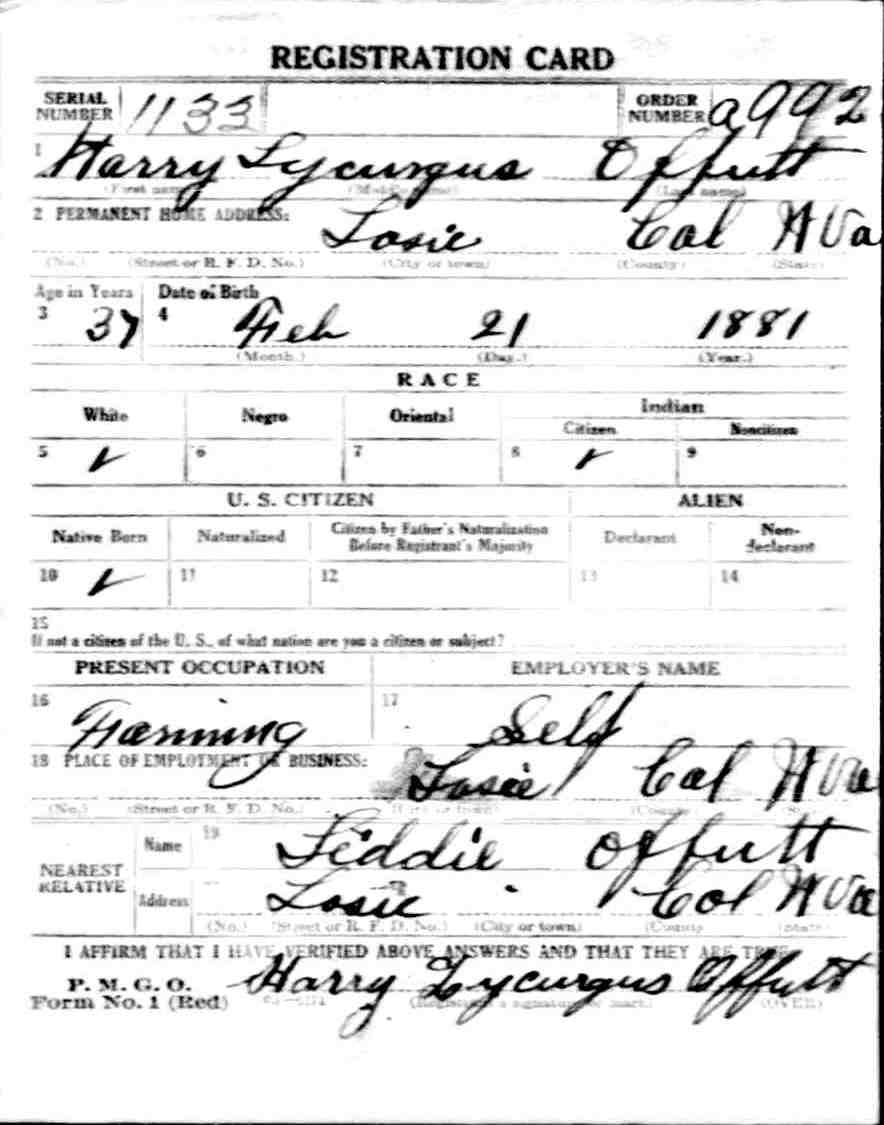 REGISTRATION CARD
SERIAL NUMBER 1133 ORDER NUMBER a992
1 Harry Lycurgus Offutt
(First name) (Middle name) (Last name)
2 PERMANENT HOME ADDRESS:
Losie Cal W Va
(No.) (Street or R. F. D. No.) (City or town) (County) (State)
Age in Years Date of Birth
3 37 4 Feb 21 1881
(Month.) (Day.) (Year.)
RACE
White Negro Oriental Indian
Citizen Noncitizen
5 ✓ 6 7 8 ✓ 9
U. S. CITIZEN ALIEN
Native Born Naturalized Citizen by Father's Naturalization Before Registrant's Majority Declarant Non-declarant
10 ✓ 11 12 13 14
15
If not a citizen of the U. S., of what nation are you a citizen or subject?
PRESENT OCCUPATION EMPLOYER'S NAME
16 Farming 17 Self
18 PLACE OF EMPLOYMENT OR BUSINESS:
Losie Cal W Va
(No.) (Street or R. F. D. No.) (City or town) (County)
NEAREST RELATIVE
Name 19 Liddie Offutt
Address Losie Col W Va
(No.) (Street or R. F. D. No.) (City or town) (County) (State)
I AFFIRM THAT I HAVE VERIFIED ABOVE ANSWERS AND THAT THEY ARE TRUE
P. M. G. O.
Form No. 1 (Red) Harry Lycurgus Offutt
(Registrant's signature or mark) (OVER)